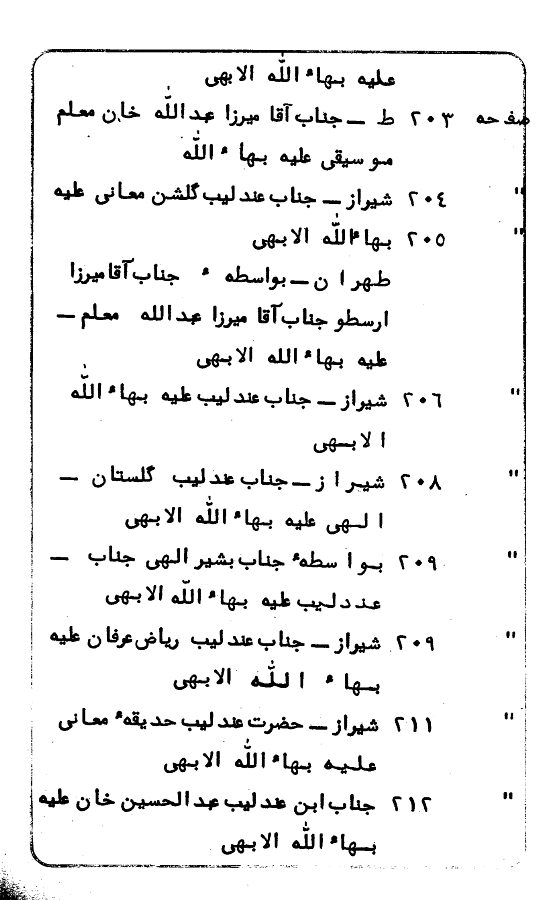 علیه بهاءاللّه الابهی
صفحه ٢٠٣ ط ــ جناب آقا میرزا عبداللّه خان معلم
موسیقی علیه بهاءاللّه
" ٢٠٤ شیراز ــ جناب عندلیب گلشن معانی علیه
" ٢٠٥ بهاءاللّه الابهی
طهران ــ بواسطه ء جناب آقا میرزا
ارسطو جناب آقا میرزا عبدالله معلم ــ
علیه بهاءالله الابهی
" ٢٠٦ شیراز ــ جناب عندلیب علیه بهاءاللّه
الابهی
" ٢٠٨ شیراز ــ جناب عندلیب گلستان ــ
الهی علیه بهاءاللّه الابهی
" ٢٠٩ بواسطهء جناب بشیر الهی جناب ــ
عندلیب علیه بهاءاللّه الابهی
" ٢٠٩ شیراز ــ جناب عندلیب ریاض عرفان علیه
بهاء اللّه الابهی
" ٢١١ شیراز ــ حضرت عندلیب حدیقهء معانی
علیه بهاءاللّه الابهی
" ٢١٢ جناب ابن عندلیب عبدالحسین خان علیه
بهاءاللّه الابهی